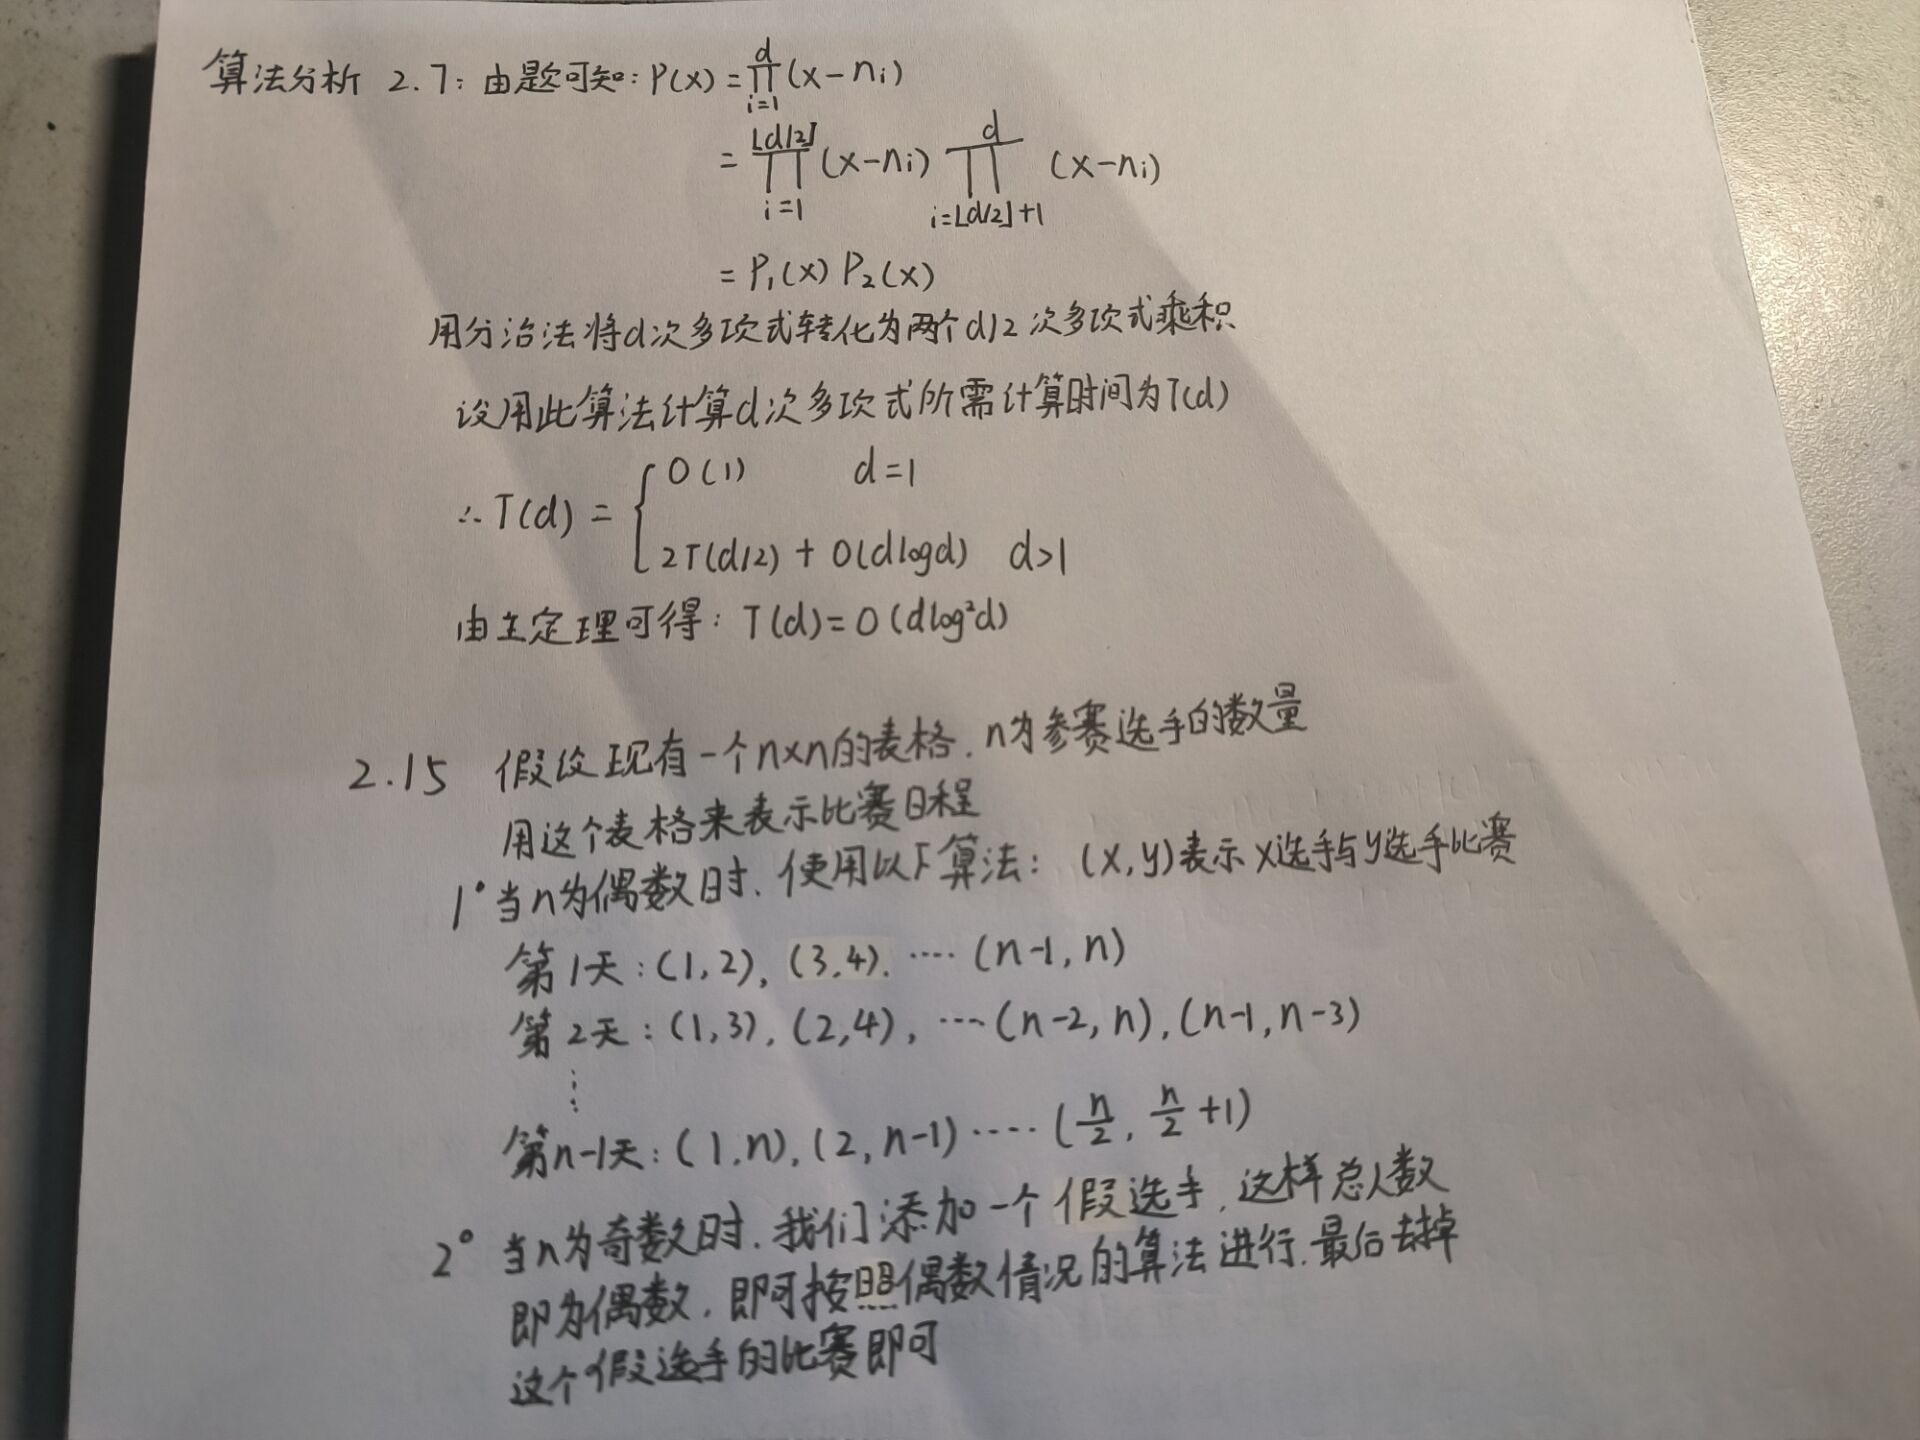 算法分析 2.7: 由题可知: P(x) = ∏_{i=1}^{d} (x-nᵢ)
= ∏_{i=1}^{⌊d/2⌋} (x-nᵢ) ∏_{i=⌊d/2⌋+1}^{d} (x-nᵢ)
= P₁(x) P₂(x)
用分治法将d次多项式转化为两个d/2次多项式乘积
设用此算法计算d次多项式所需计算时间为T(d)
∴ T(d) = { O(1) d=1
2T(d/2) + O(dlogd) d>1
由主定理可得: T(d)=O(dlog²d)
2.15 假设现有一个n×n的表格, n为参赛选手的数量
用这个表格来表示比赛日程
1° 当n为偶数时, 使用以下算法: (x,y)表示x选手与y选手比赛
第1天: (1,2), (3,4), …… (n-1, n)
第2天: (1,3), (2,4), …… (n-2, n), (n-1, n-3)
⋮
第n-1天: (1,n), (2, n-1) …… (n/2, n/2 +1)
2° 当n为奇数时, 我们添加一个假选手, 这样总人数
即为偶数, 即可按照偶数情况的算法进行, 最后去掉
这个假选手的比赛即可